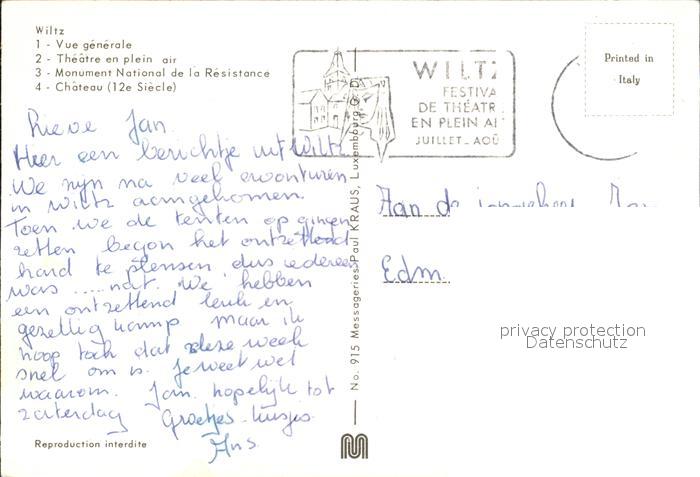 Wiltz
1 - Vue générale
2 - Théâtre en plein air
3 - Monument National de la Résistance
4 - Château (12e Siècle)
WILTZ
FESTIVA
DE THÉATR
EN PLEIN AI
JUILLET - AOÛ
Printed in
Italy
Lieve Jan.
Heer een berichtje uit Wiltz.
We zijn na veel avonturen
in Wiltz aamgekomen.
Toen we de tenten op gingen
zetten begon het ontzettend
hard te plensen dus iedereen
was ..... nat. We hebben
een ontzettend leuk en
gezellig kamp maar ik
hoop toch dat deze week
snel om is. Je weet wel
waarom. Jan, hopelijk tot
zaterdag Groetjes kusjes.
Ans.
Aan de
Edm.
privacy protection
Datenschutz
No. 915 Messageries Paul KRAUS, Luxembourg G. D.
Reproduction interdite